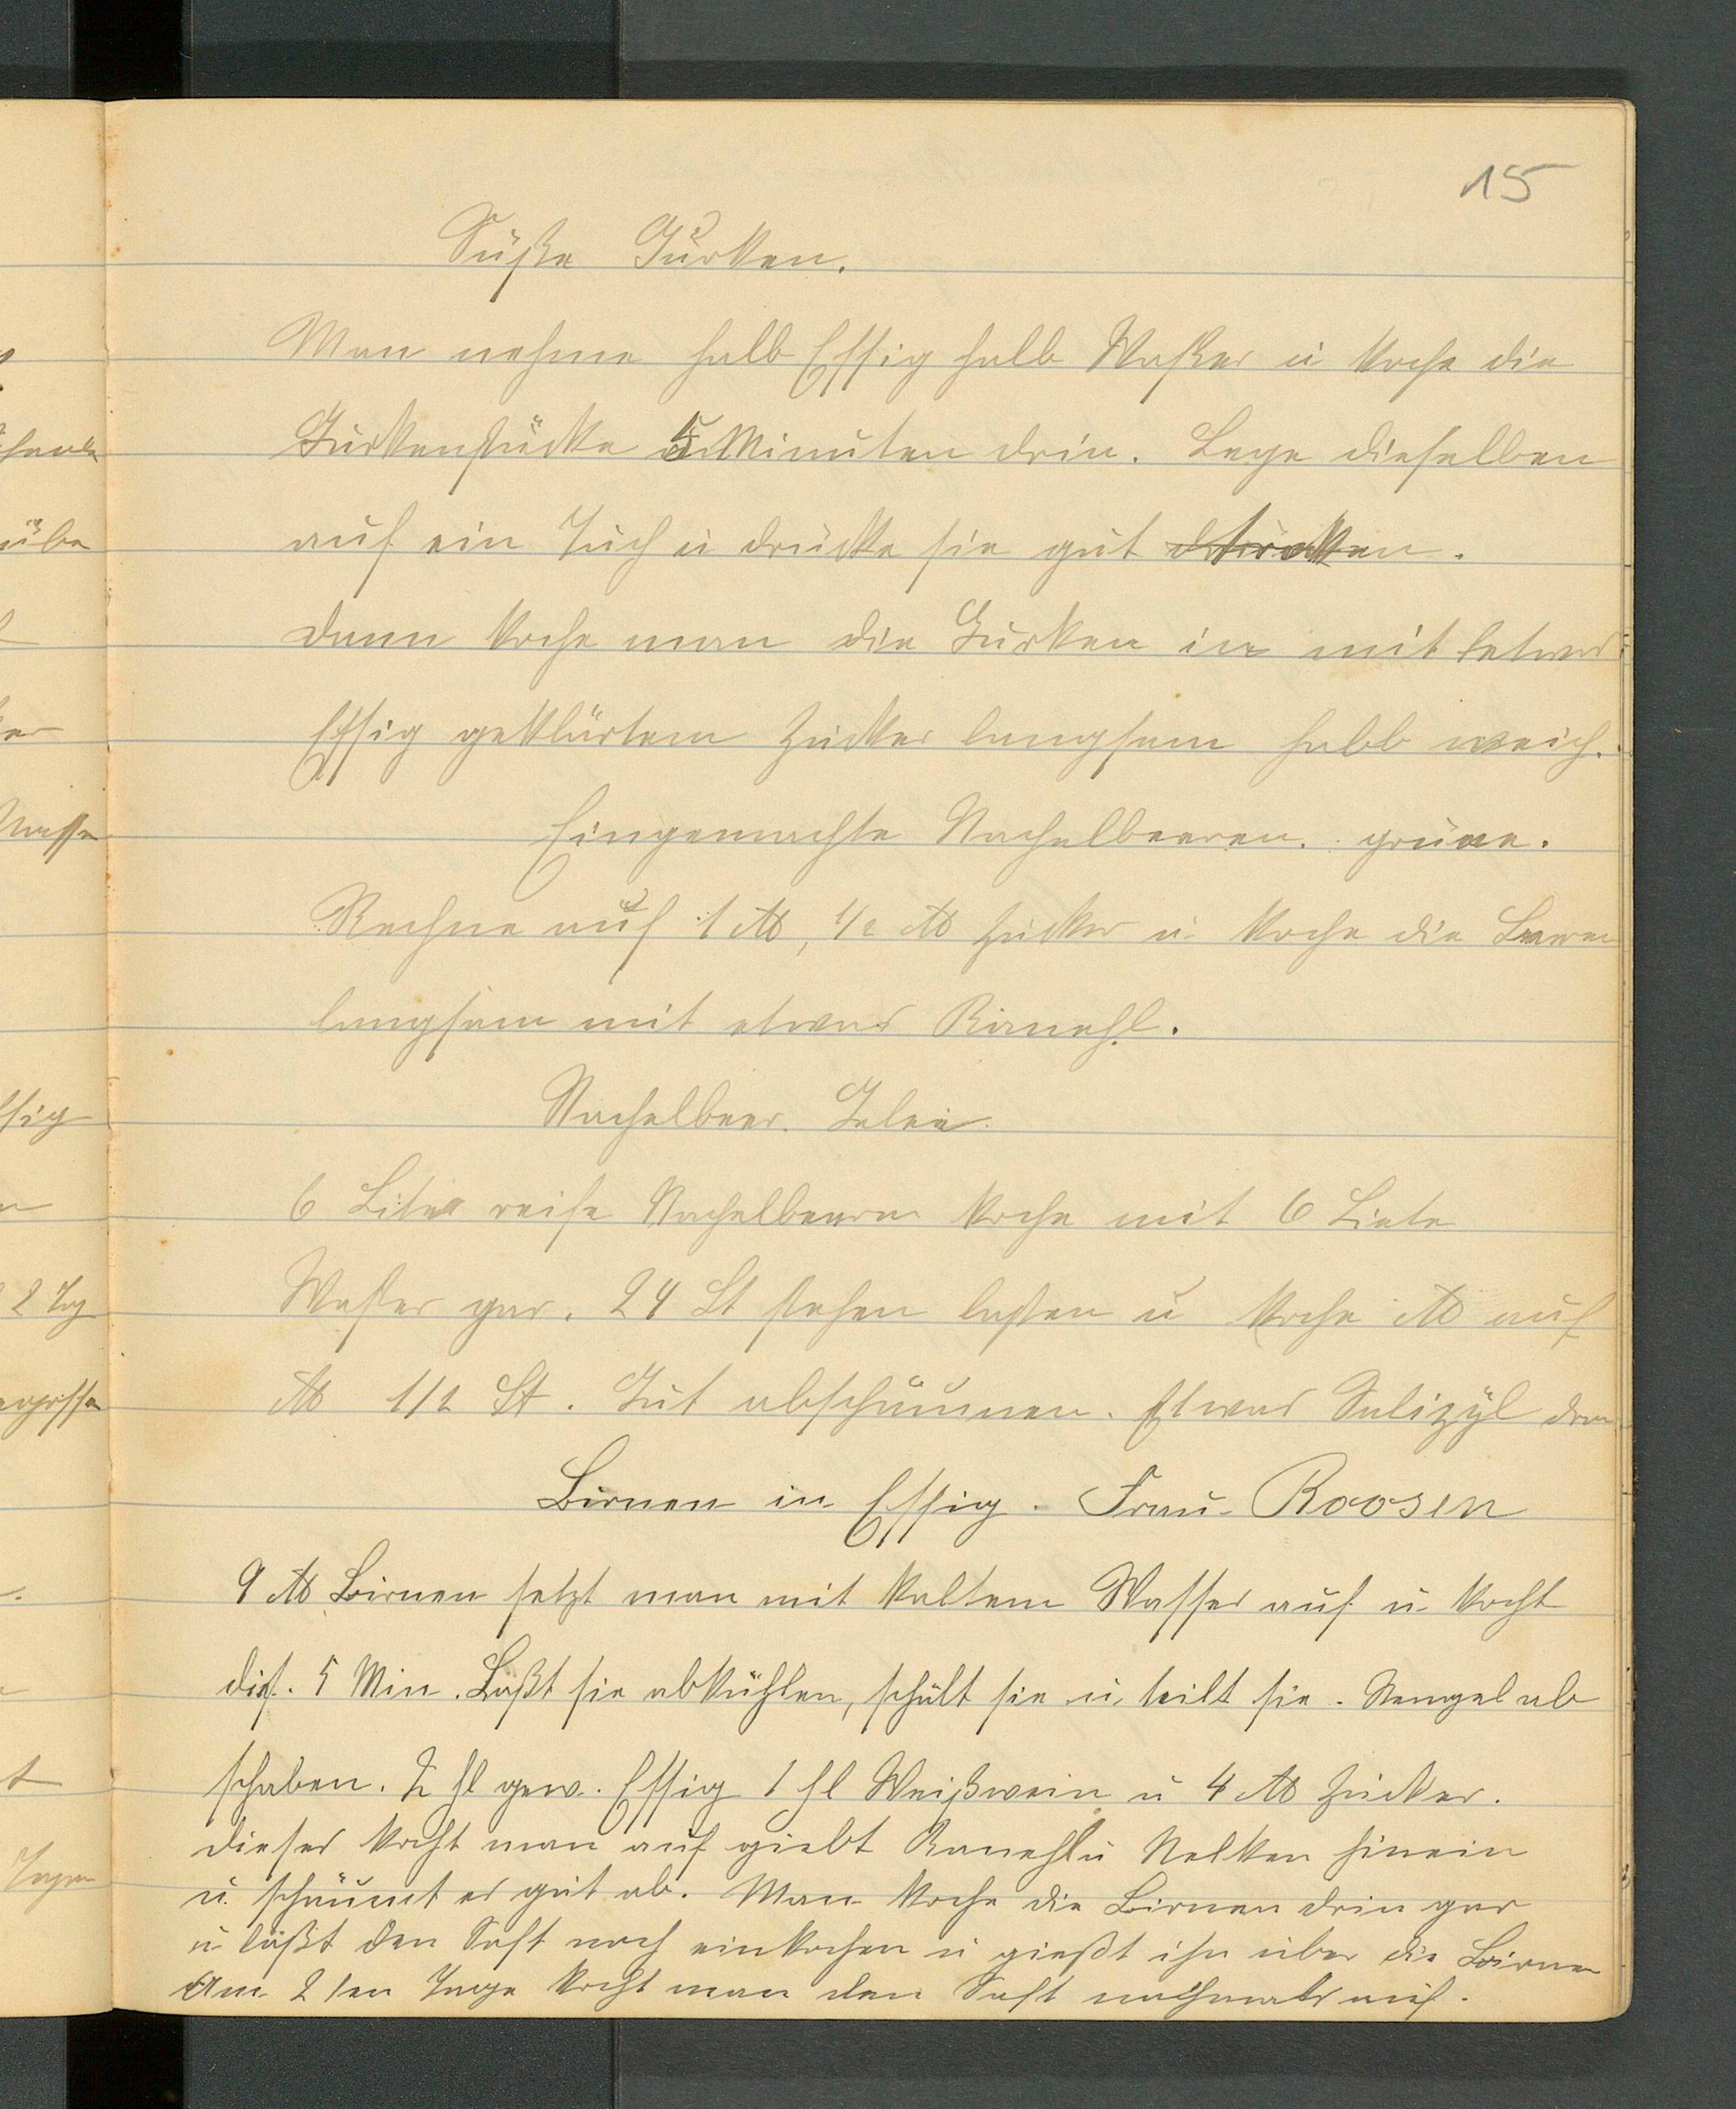 15
Süße Gurken.
Man nehme halb Essig halb Waßer u koche die
Gurkenstücke 5 Minuten drin. Lege dieselben
auf ein Tuch u drücke sie gut trocken.
dann koche man die Gurken in mit etwas
Essig geklärtem Zucker langsam halb weich.
Eingemachte Stachelbeeren. grüne.
Rechne auf 1 ℔, 1/2 ℔ Zucker u. koche die Beeren
langsam mit etwas Kanehl.
Stachelbeer. Gelee.
6 Liter reife Stachelbeeren koche mit 6 Liete
Waßer gar. 24 St stehen laßen u koche ℔ auf
℔ 1/2 St. Gut abschäumen. Etwas Salizÿl dran
Birnen in Essig. Frau Roosen
9 ℔ Birnen setzt man mit kaltem Wasser auf u. kocht
dies. 5 Min. Läßt sie abkühlen, schält sie u. teilt sie. Stengel ab
schaben. 2 fl gew. Essig 1 fl Weißwein u 4 ℔ Zucker.
dieses kocht man auf giebt Kanehl u Nelken hinein
u. schäumt es gut ab. Man koche die Birnen drin gar
u. läßt den Saft noch einkochen u gießt ihn über die Birnen
Am 2ten Tage kocht man den Saft nochmals auf.